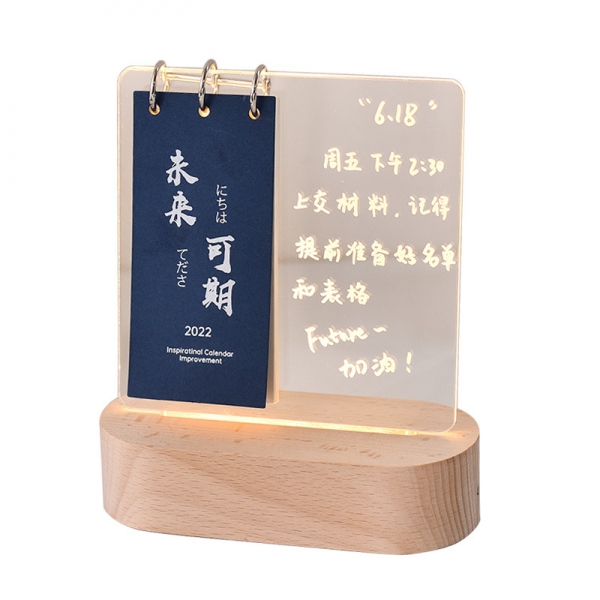 未来
にちは
可期
てださ
2022
Inspiratinal Calendar
Improvement
"6.18"
周五下午2:30
上交材料,记得
提前准备好名单
和表格
Future~
加油!